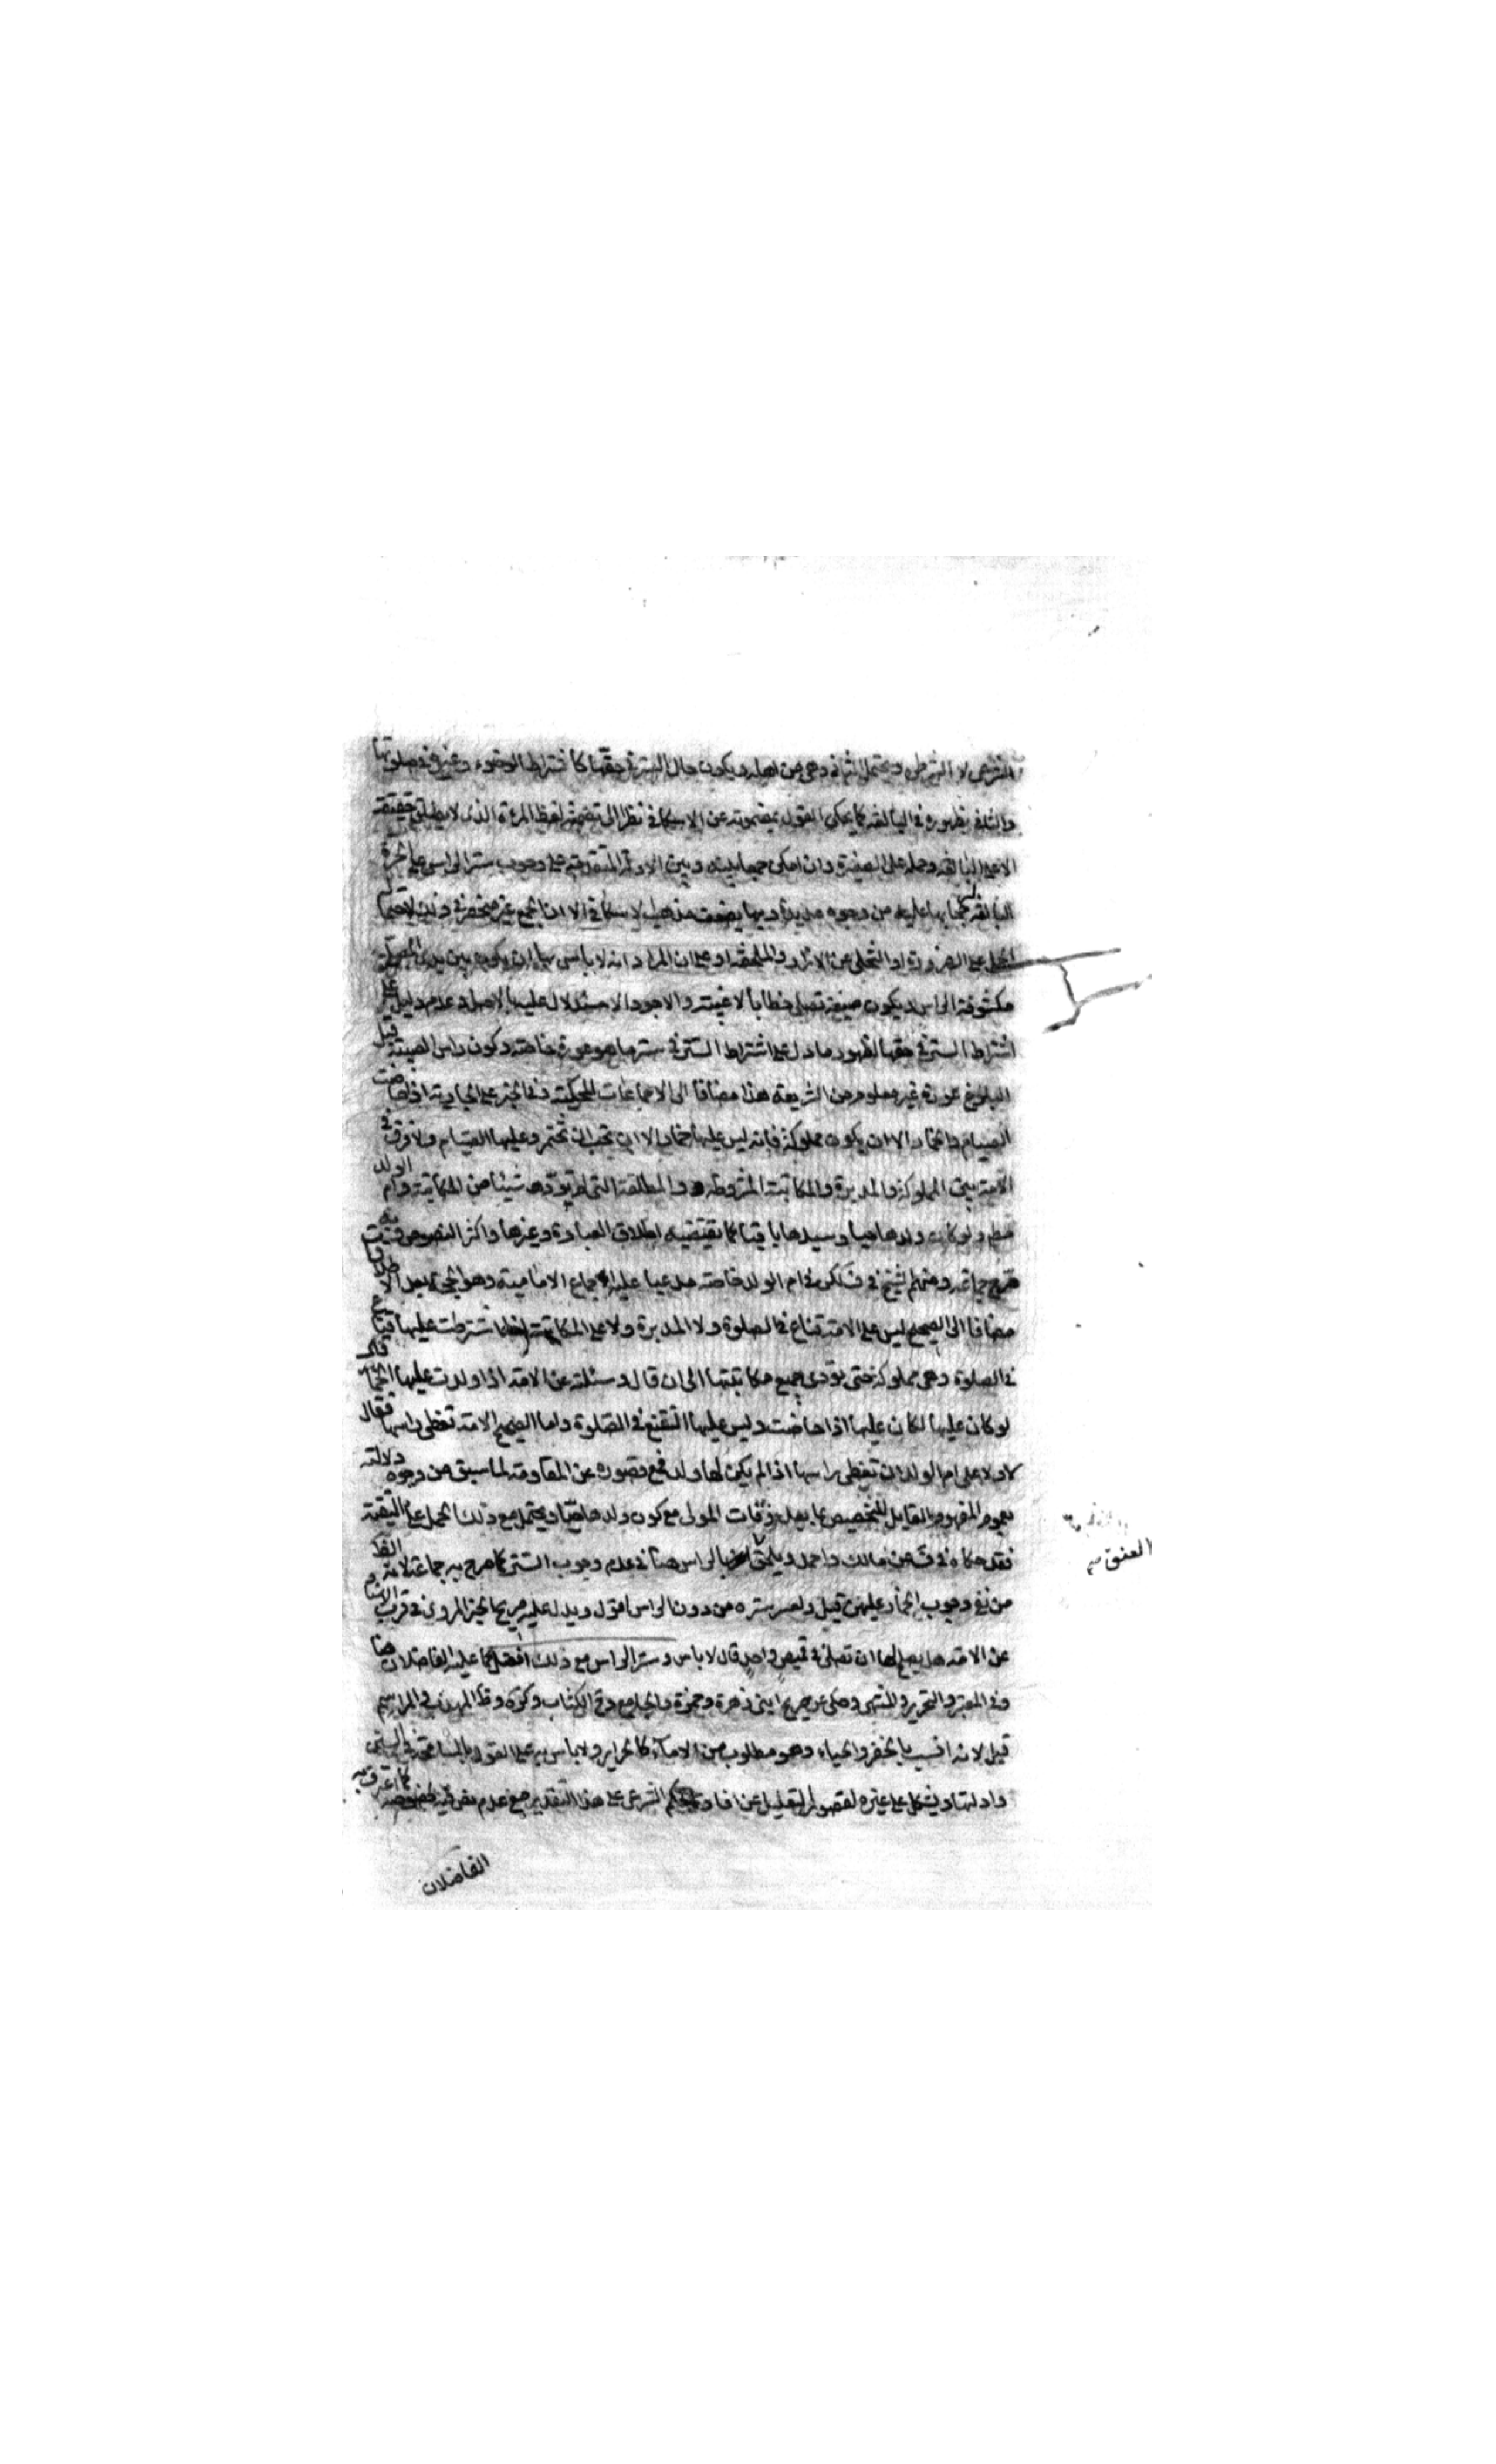 الشرعى لا الشرطى ويحتمل الثانى وهى من اهله ويكون حال الستر فى حقها كاشتراط الوضوء وغيره فى صلوتها
والثانى بظهوره فى البالغه كما يحكى القول بمضمونه عن الاسكافى نظرا الى تضمنه لفظ المرءة الذى لا يطلق حقيقة
الا على البالغه وحمله على الصغيرة وان امكن جمعا بينه وبين الادلة المتقدمة على وجوب ستر الراس على الحرة
البالغه من وجوه عديدة وبها يضعف مذهب الاسكافى الا ان الجمع غير منحصر فى ذلك لاحتمال
الحمل على الضرورة او التخلى عن الازار والملحفه او على ان المراد انه لا باس بها ان يكون بين يدى المصلى
مكشوفة الراس ويكون صيغة تصلى خطابا لا غيبته والاجود الاستدلال عليها بالاصل وعدم دليل على
اشتراط الستر فى حقها لظهور ما دل على اشتراط الستر فى ستر ما هو عورة خاصة وكون راس الصبية قبل
البلوغ عورة غير معلوم من الشريعه هذا مضافا الى الاجماعات المحكية وفى الخبر على الجارية اذا حاضت
الصيام والخمار الا ان يكون مملوكة فانه ليس عليها خمار الا ان تحب ان تختمر وعليها الصيام ولا فرق فى
الامة بين المملوكة والمدبرة والمكاتبة المشروطه والمطلقة التى لم تؤد شيئا من المكاتبة وام الولد
ولو كان ولدها حيا وسيدها باقيا كما يقتضيه اطلاق العبارة وغيرها واكثر النصوص وبه
صرح جماعه ومنهم الشيخ فى ف لكن فى ام الولد خاصة مدعيا عليه اجماع الامامية وهو الحجة بعد الاطلاقات
مضافا الى الصحيح ليس على الامة قناع فى الصلوة ولا المدبرة ولا على المكاتبة اذا اشترطت عليها قناع
فى الصلوة وهى مملوكة حتى تؤدى جميع مكاتبتها الى ان قال وسئلته عن الامة اذا ولدت عليها الخمار قال
لو كان عليها لكان عليها اذا حاضت وليس عليها التقنع فى الصلوة واما الصحيح الامة تغطى راسها فقال
لا ولا على ام الولد ان تغطى راسها اذا لم يكن لها ولد فمع قصوره عن المقاومة لما سبق من وجوه دلالته
بعموم المفهوم القابل للتخصيص بما بعد وفات المولى مع كون ولدها حيا ويحتمل مع ذلك الحمل على التقية
فقد حكاه فى عن مالك واحمد ويلحق بالراس هنا فى عدم وجوب الستر كما صرح به جماعة لانه الظ
من نفى وجوب الخمار عليهن قيل ولعسر ستره من دون الراس اقول ويدل عليه صريحا الخبر المروى فى قرب الاسناد
عن الامة هل يصلح لها ان تصلى فى قميص واحد قال لا باس وستر الراس مع ذلك افضل كما عليه الفاضلان هنا
وفى المعتبر والتحرير والمنتهى وحكى عن صريح ابنى زهرة وحمزة والجامع وفى المراسم
قيل لانه انسب بالخفر والحياء وهو مطلوب من الاماء كالحراير ولا باس به على القول بالمسامحة فى السنن
وادلتها ويشكل على غيره لقصور التعليل عن افادة الحكم الشرعى على هذا التقدير مع عدم نص فيه بخصوصه كما اعترف به
العنق
الفاضلان